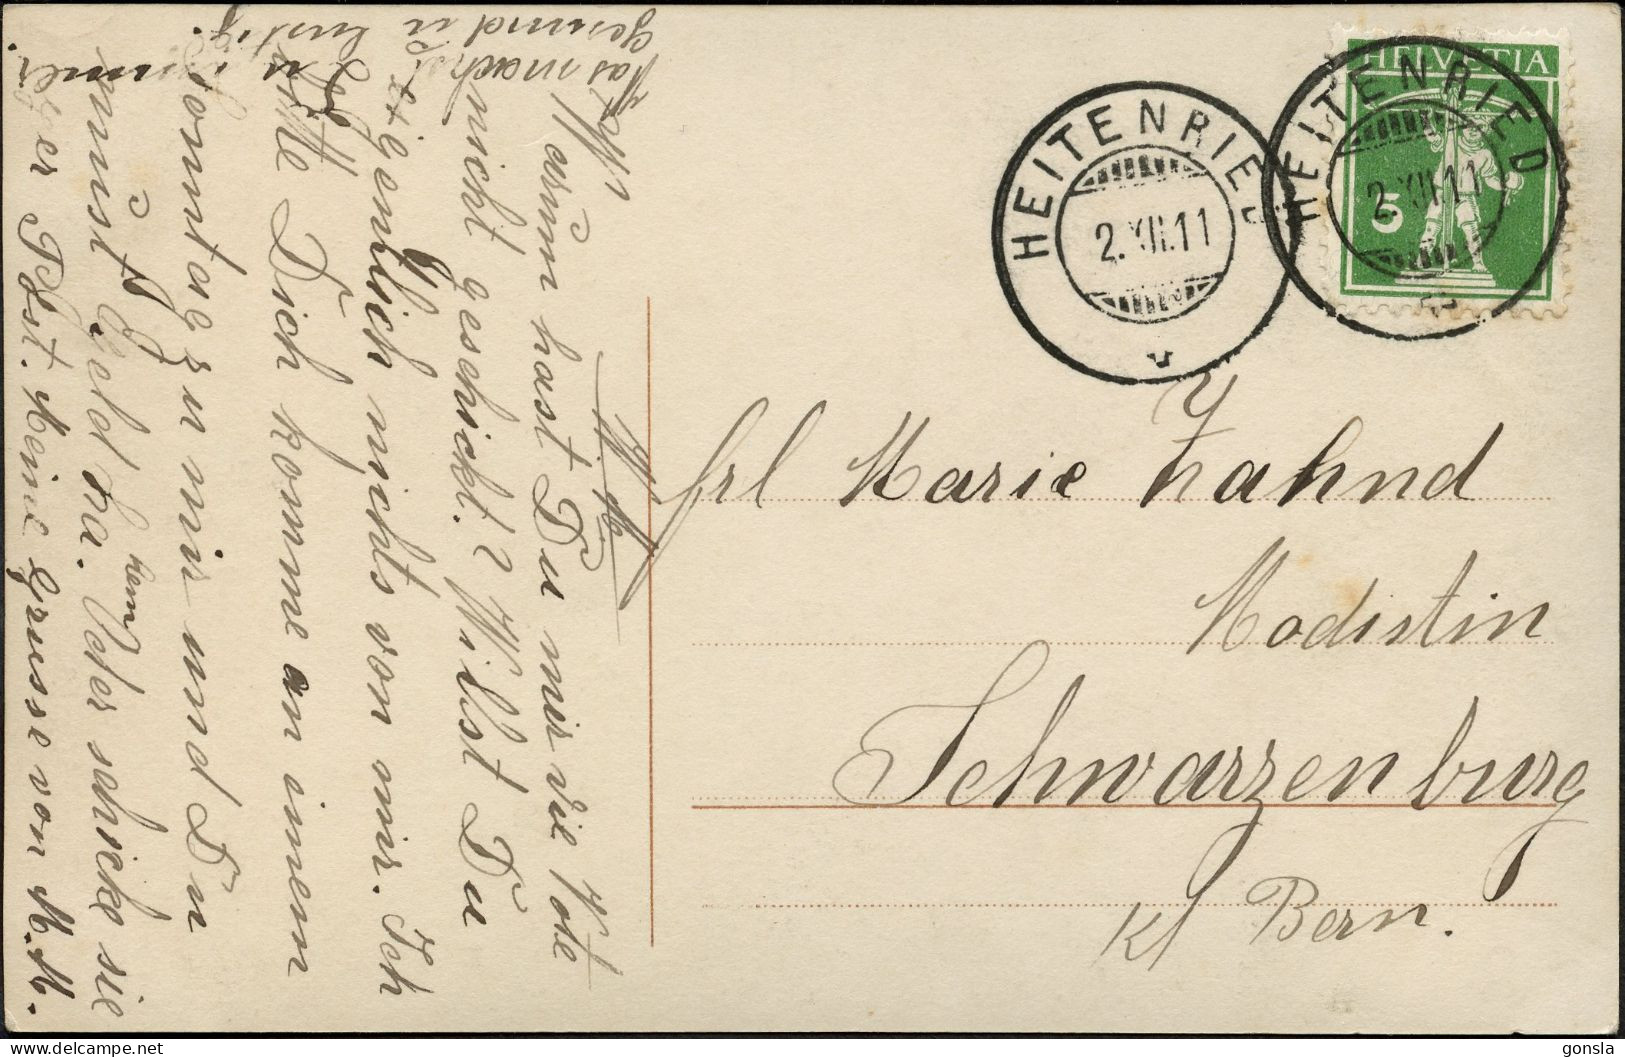 HELVETIA
5
HEITENRIED
2.XII.11
HEITENRIED
2.XII.11
Frl Marie Zahnd
Modistin
Schwarzenburg
Kt Bern.
M. M.
Warum hast Du mir die
nicht geschickt? Willst Du
eigenlich nichts von mir. Ich
bitte Dich komme an einem
Sonntag zu mir und Du
must Geld ha. kom Oder schicke sie
per Post. Meine Grüsse von M. M.
Was mach
gesund u lustig.